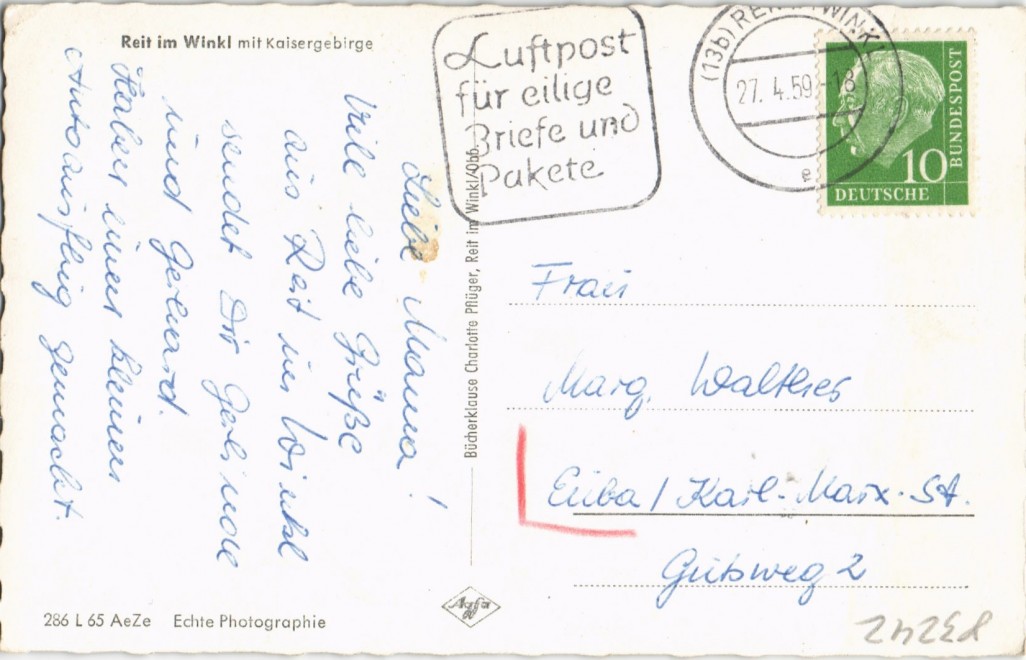 Reit im Winkl mit Kaisergebirge
Liebe Mama!
Viele liebe Grüße
aus Reit im Winkl
sendet Dir Gerlinde
und Gerhard.
Haben einen kleinen
Autoausflug gemacht.
286 L 65 AeZe Echte Photographie
Bücherklause Charlotte Pflüger, Reit im Winkl/Obb.
Agfa
Luftpost
für eilige
Briefe und
Pakete
(13b) REIT I. WINKL
27. 4. 59.-18
e
10
DEUTSCHE
BUNDESPOST
Frau
Marg. Walther
Euba / Karl-Marx-St.
Gutsweg 2